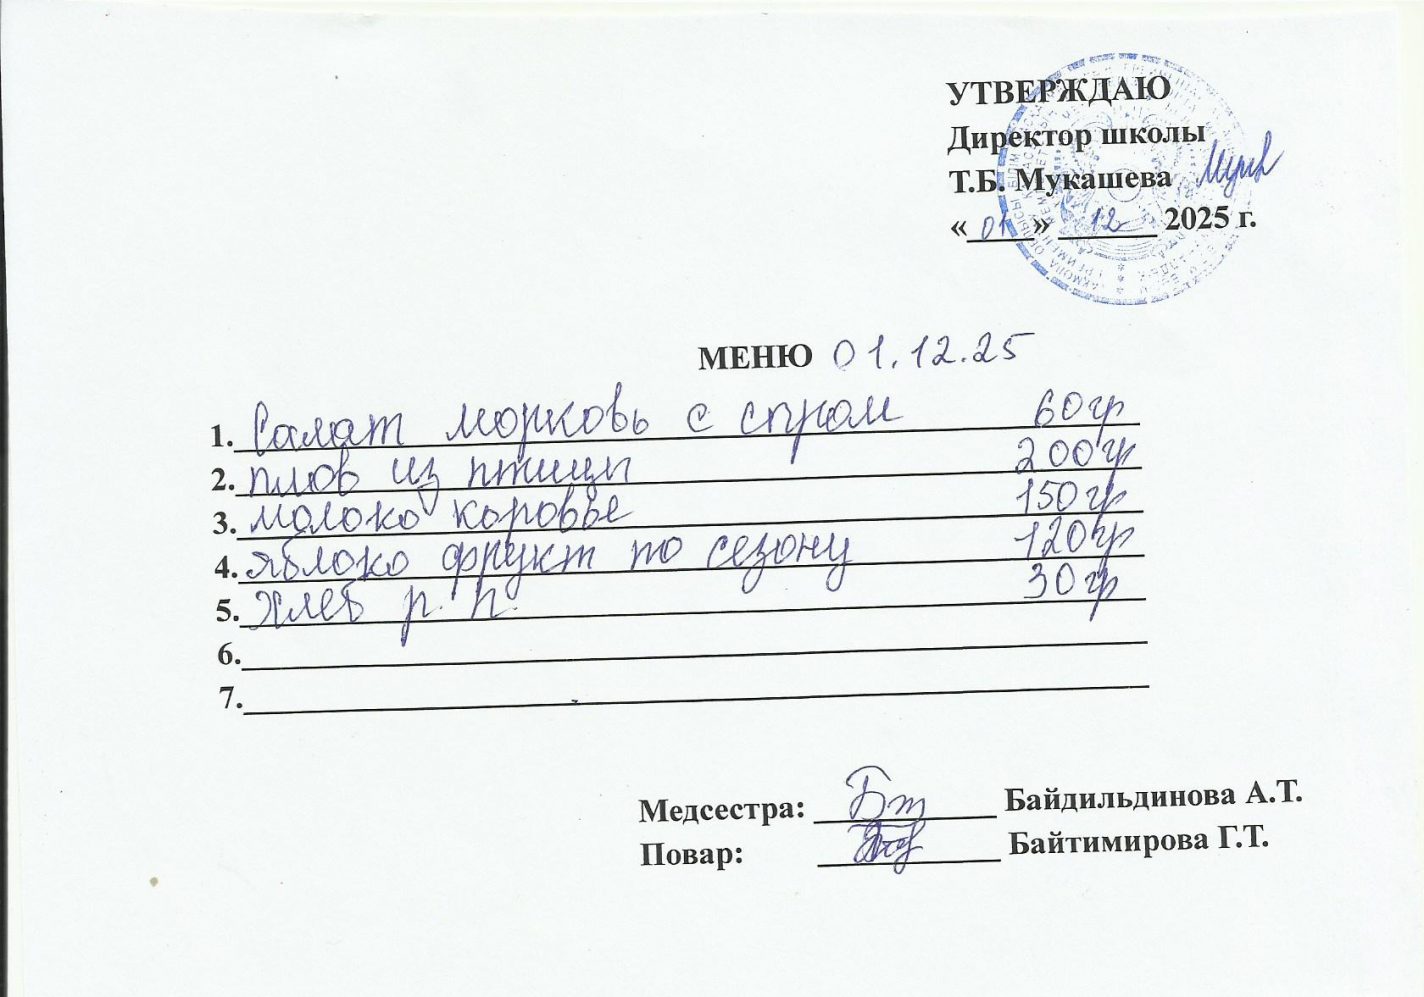 УТВЕРЖДАЮ
Директор школы
Т.Б. Мукашева
«01» 12 2025 г.
МЕНЮ 01.12.25
1. Салат морковь с сыром 60гр
2. плов из птицы 200гр
3. молоко коровье 150гр
4. яблоко фрукт по сезону 120гр
5. Хлеб р. п. 30гр
6.
7.
Медсестра: Байдильдинова А.Т.
Повар: Байтимирова Г.Т.